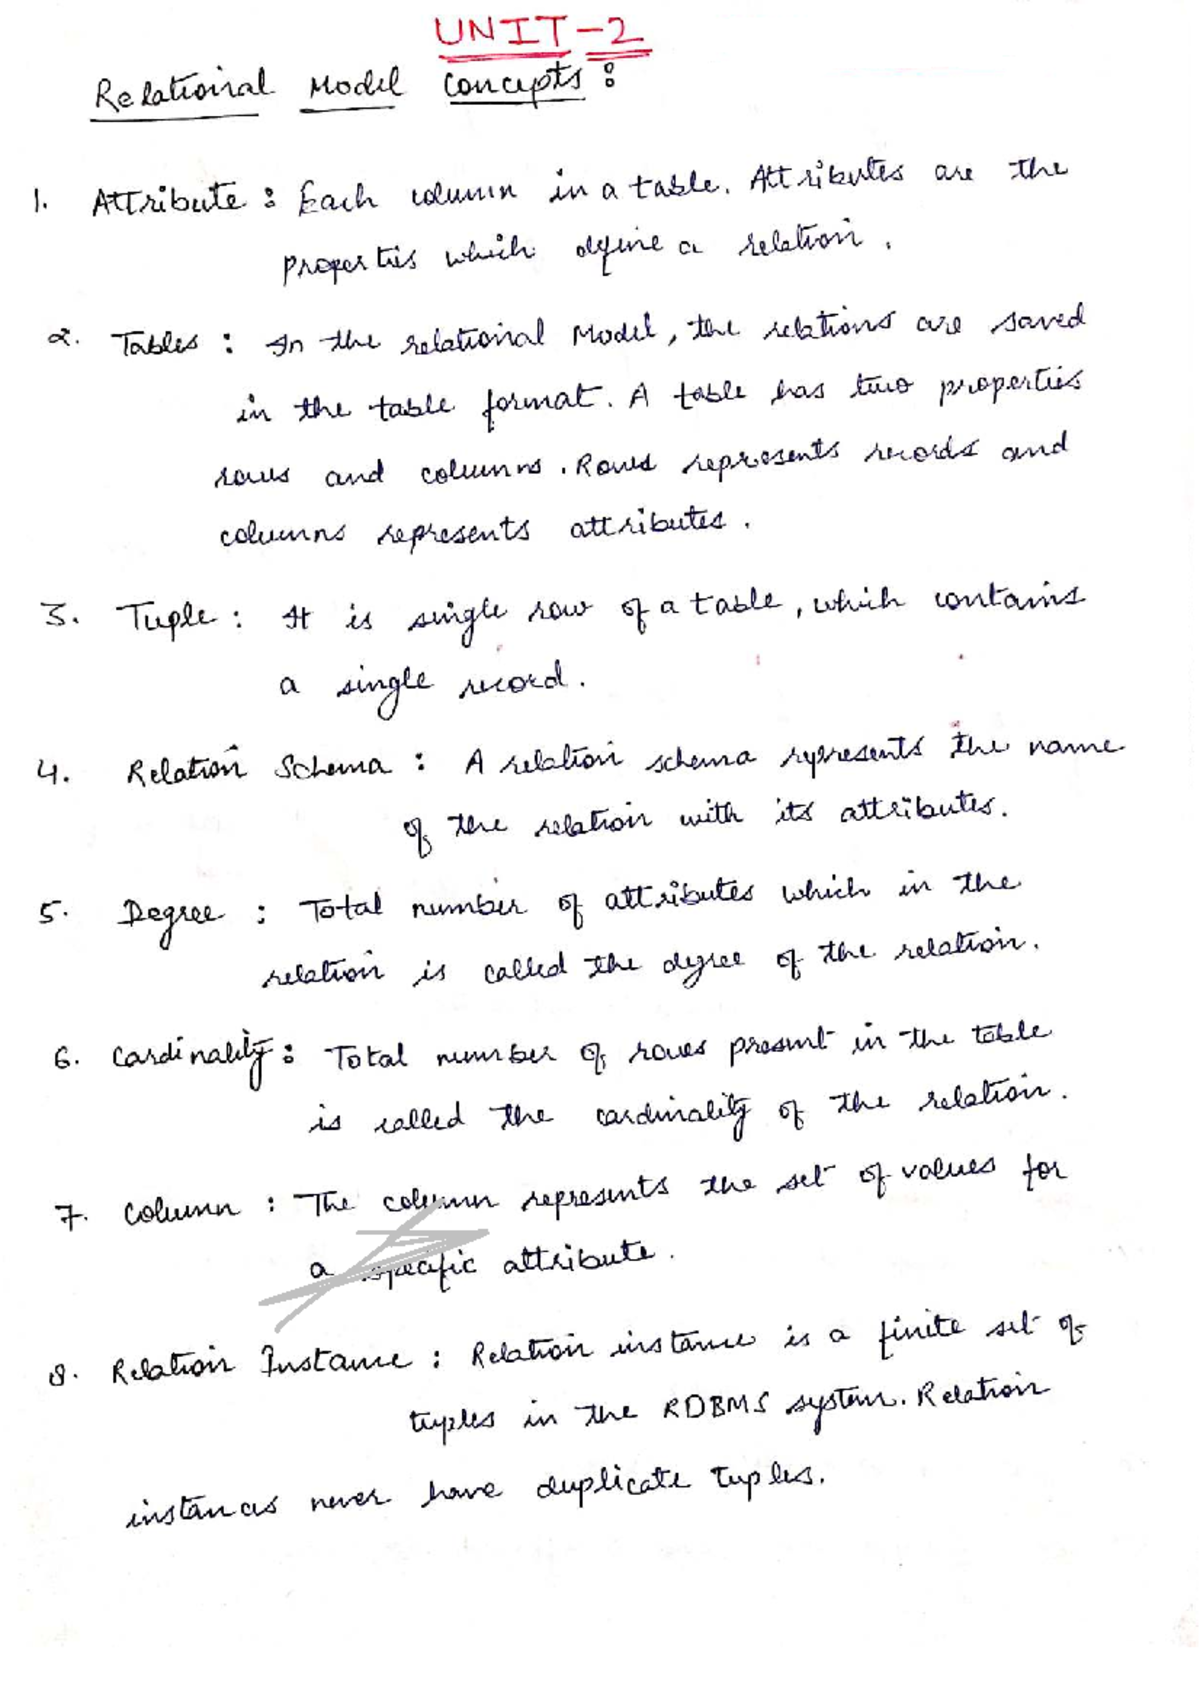 UNIT-2
Relational Model Concepts:
1. Attribute: Each column in a table. Attributes are the
properties which define a relation.
2. Tables: In the relational Model, the relations are saved
in the table format. A table has two properties
rows and columns. Rows represents records and
columns represents attributes.
3. Tuple: It is single row of a table, which contains
a single record.
4. Relation Schema: A relation schema represents the name
of the relation with its attributes.
5. Degree: Total number of attributes which in the
relation is called the degree of the relation.
6. Cardinality: Total number of rows present in the table
is called the cardinality of the relation.
7. Column: The column represents the set of values for
a specific attribute.
8. Relation Instance: Relation instance is a finite set of
tuples in the RDBMS system. Relation
instances never have duplicate tuples.